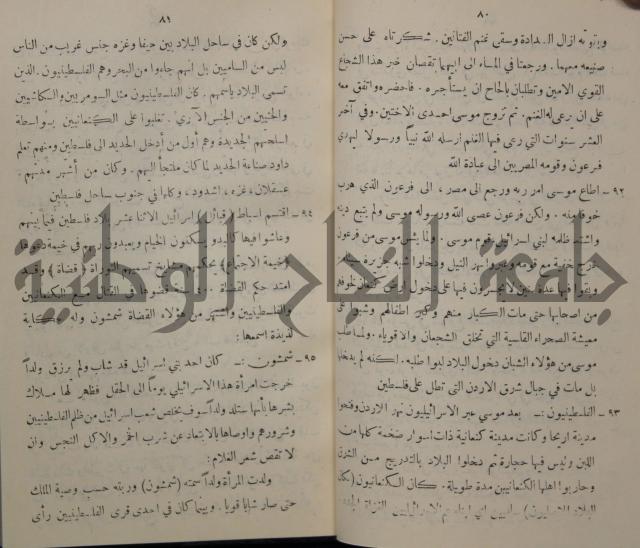 ٨٠
وبقوته ازال السدادة وسقى غنم الفتاتين . شكرتاه على حسن
صنيعه معهما . ورجعتا في المساء الى ابيهما تقصان خبر هذا الشجاع
القوي الامين وتطلبان بالحاح ان يستأجره . فاحضره واتفق معه
على ان يرعى له الغنم . ثم تزوج موسى احدى الاختين . وفي آخر
العشر سنوات التي رعى فيها الغنم ارسله الله نبياً ورسولا ليهدي
فرعون وقومه المصريين الى عبادة الله
٩٢ - اطاع موسى امر ربه ورجع الى مصر ، الى فرعون الذي هرب
خوفا منه . ولكن فرعون عصى الله ورسوله موسى ولم يتبع دينه
واشتد ظلمه لبني اسرائيل قوم موسى . ولما يئس موسى من فرعون
خرج خفية مع قومه وعبروا نهر النيل ودخلوا شبه جزيرة سيناء
وبقوا فيها عدة سنين لا يجسرون فيها على دخول ارض كنعان لخوفهم
من اصحابها حتى مات الكبار منهم وكبر اطفالهم وشبوا على
معيشة الصحراء القاسية التي تخلق الشجعان والاقوياء . ولما طلب
موسى من هؤلاء الشبان دخول البلاد لبوا طلبه . لكنه لم يدخلها
بل مات في جبال شرق الاردن التى تطل على فلسطين
٩٣ - الفلسطينيون :ـ بعد موسى عبر الاسرائيليون نهر الاردن وفتحوا
مدينة اريحا وكانت مدينة كنعانية ذات اسوار ضخمة كلها من
اللبن وليس فيها حجارة ثم دخلوا البلاد بالتدريج من الشرق
وحاربوا اهلها الكنعانيين مدة طويلة . كان الكنعانيون
البلاد الاصليون
٨١
ولكن كان في ساحل البلاد بين حيفا وغزه جنس غريب من الناس
ليس من الساميين بل انهم جاءوا من البحر وهم الفلسطينيون . الذين
تسمى البلاد باسمهم . كان الفلسطينيون مثل السومريين والكاشيين
والحثيين من الجنس الآري . تغلبوا على الكنعانيين بواسطة
اسلحتهم الجديدة وهم أول من أدخل الحديد الى فلسطين ومنهم تعلم
داود صناعة الحديد لما كان ملتجأ اليهم . وكان من أشهر مدنهم .
عسقلان ، غزه ، اشدود ، وكلها في جنوب ساحل فلسطين
٩٤ - اقتسم اسباط ( قبائل ) اسرائيل الاثنا عشر بلاد فلسطين فيما بينهم
وعاشوا فيها كالبدو يسكنون الخيام ويعبدون ربهم في خيمة دعوها
(خيمة الاجتماع) يحكمهم مشايخ تسميهم التوراة ( قضاة ) وقد
امتد حكم القضاة قضوها في القتال مع الكنعانيين
والفلسطينيين واشتهر من هؤلاء القضاة شمشون وله حكاية
لذيذة اسمعها :
٩٥ - شمشون :ـ كان احد بني اسرائيل قد شاب ولم يرزق ولداً
خرجت امرأة هذا الاسرائيلي يوماً الى الحقل فظهر لها ملاك
بشرها بأنها ستلد ولداً سوف يخلص شعب اسرائيل من ظلم الفلسطينيين
وشرورهم واوصاها بالابتعاد عن شرب الخمر والاكل النجس وان
لا تقص شعر الغلام :
ولدت المرأة ولداً سمته (شمشون) وربته حسب وصية الملك
حتى صار شابا قويا . وبينما كان في احدى قرى الفلسطينيين رأى
جامعة النجاح الوطنية